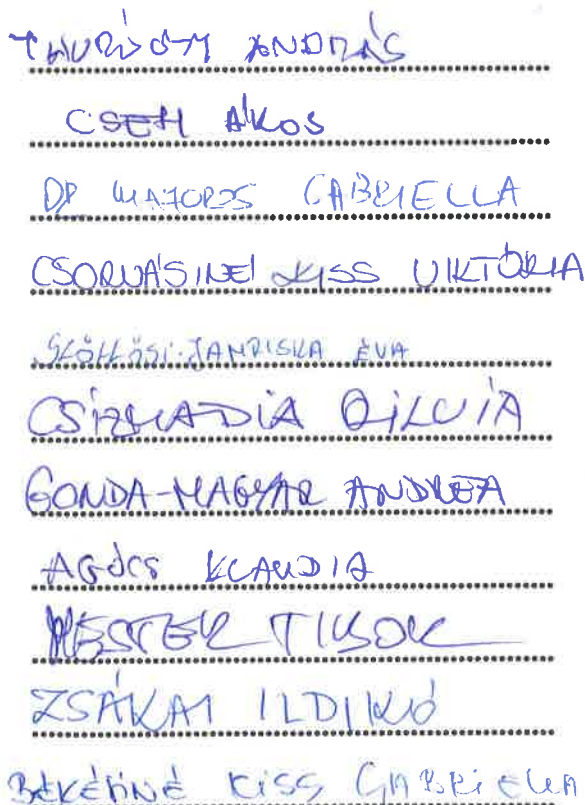 ANDRÁS
CSEH ÁKOS
DR MAJOROS GABRIELLA
CSORVÁSINÉ KISS VIKTÓRIA
SZÖLLŐSI-JANDISKA ÉVA
CSIZMADIA SZILVIA
GONDA-MAGYAR ANDREA
AGÓCS KLAUDIA
MESTER TIBOR
ZSÁKAI ILDIKÓ
BÉKÉSINÉ KISS GABRIELLA